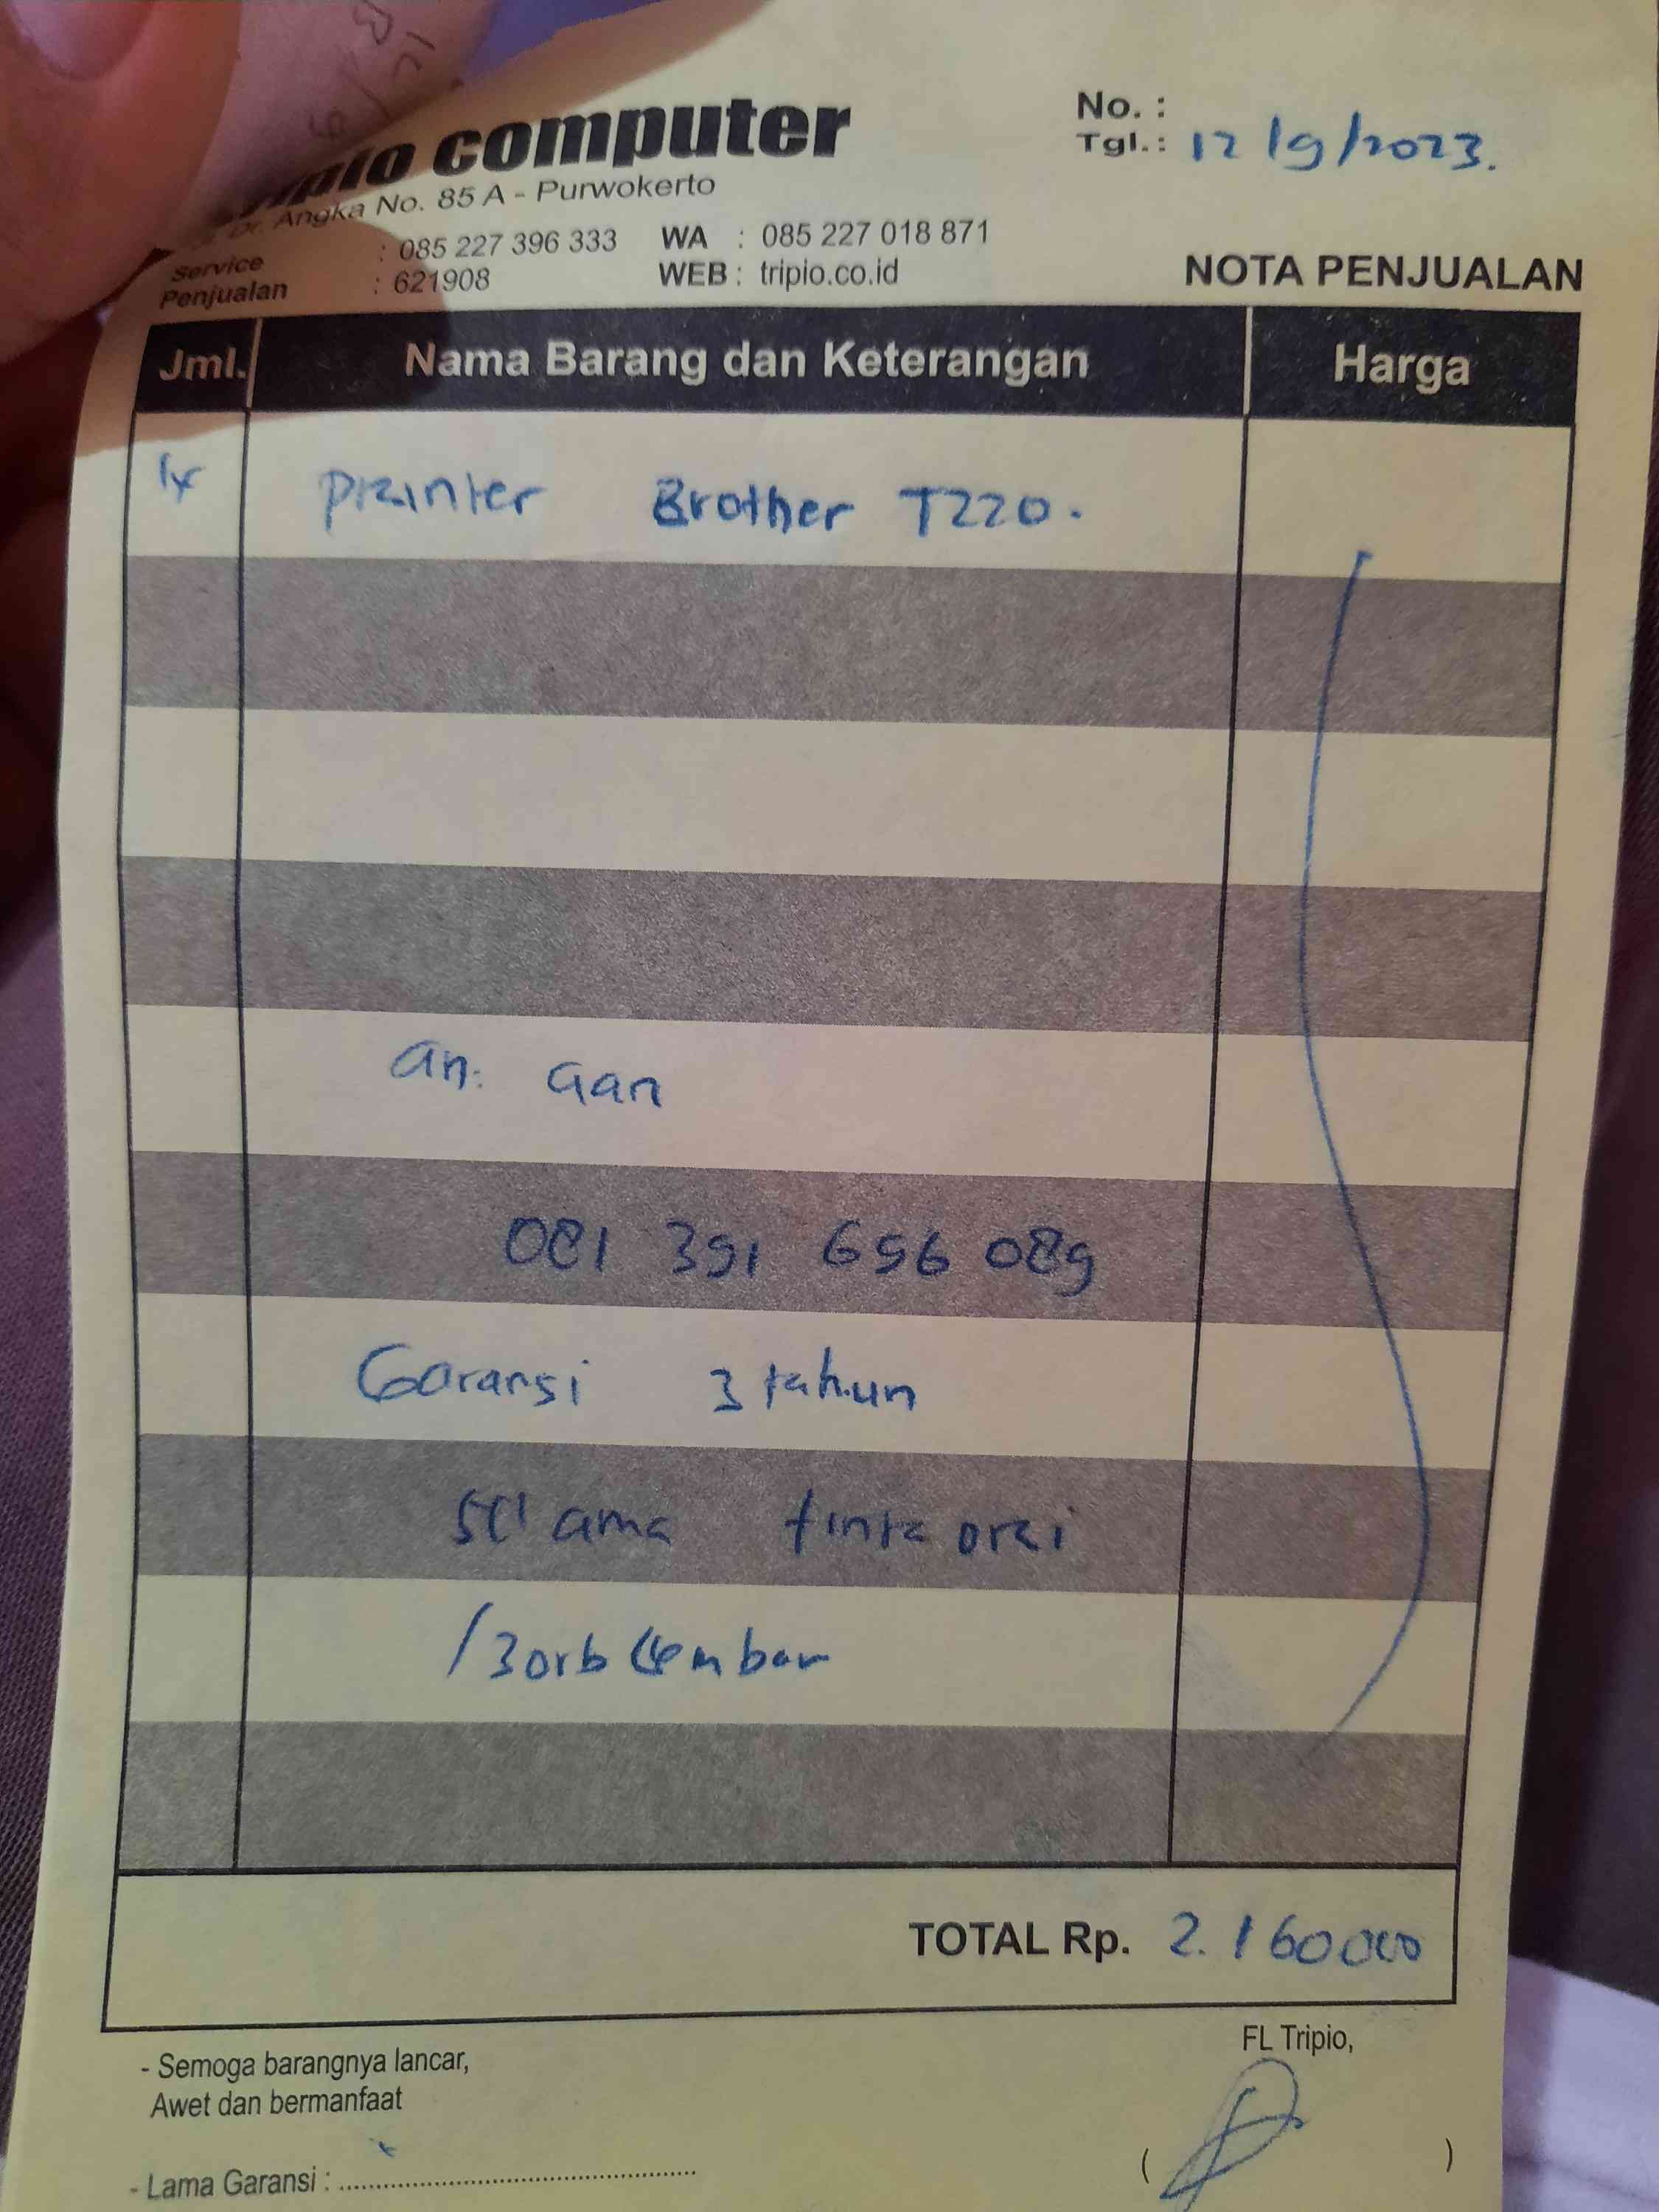 computer
No. :
Tgl. : 12/9/2023.
Dr. Angka No. 85 A - Purwokerto
Service : 085 227 396 333 WA : 085 227 018 871
Penjualan : 621908 WEB : tripio.co.id
NOTA PENJUALAN
Jml. Nama Barang dan Keterangan Harga
1x Printer Brother T220.
an. Gan
081 391 656 089
Garansi 3 tahun
selama tinta ori
/30rb lembar
TOTAL Rp. 2.160000
FL Tripio,
- Semoga barangnya lancar,
Awet dan bermanfaat
- Lama Garansi : ........................................
( )